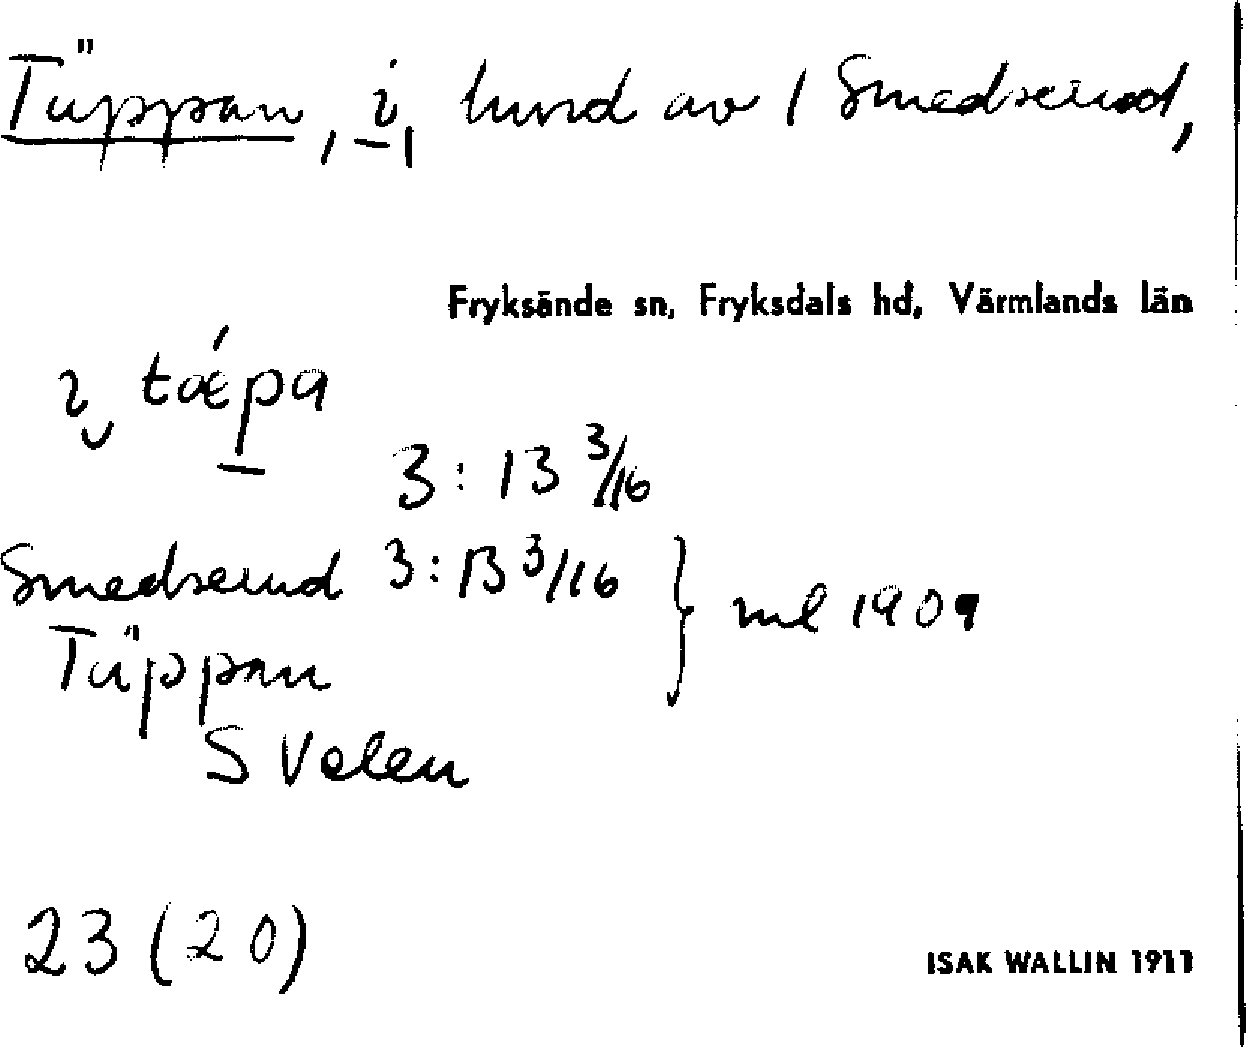 Täppan, i, lund av 1 Smedserud,
Fryksände sn, Fryksdals hd, Värmlands län
3:13 3/16
Smedserud 3:13 3/16 } ml 1909
Täppan
S Velen
23 (20)
ISAK WALLIN 1911